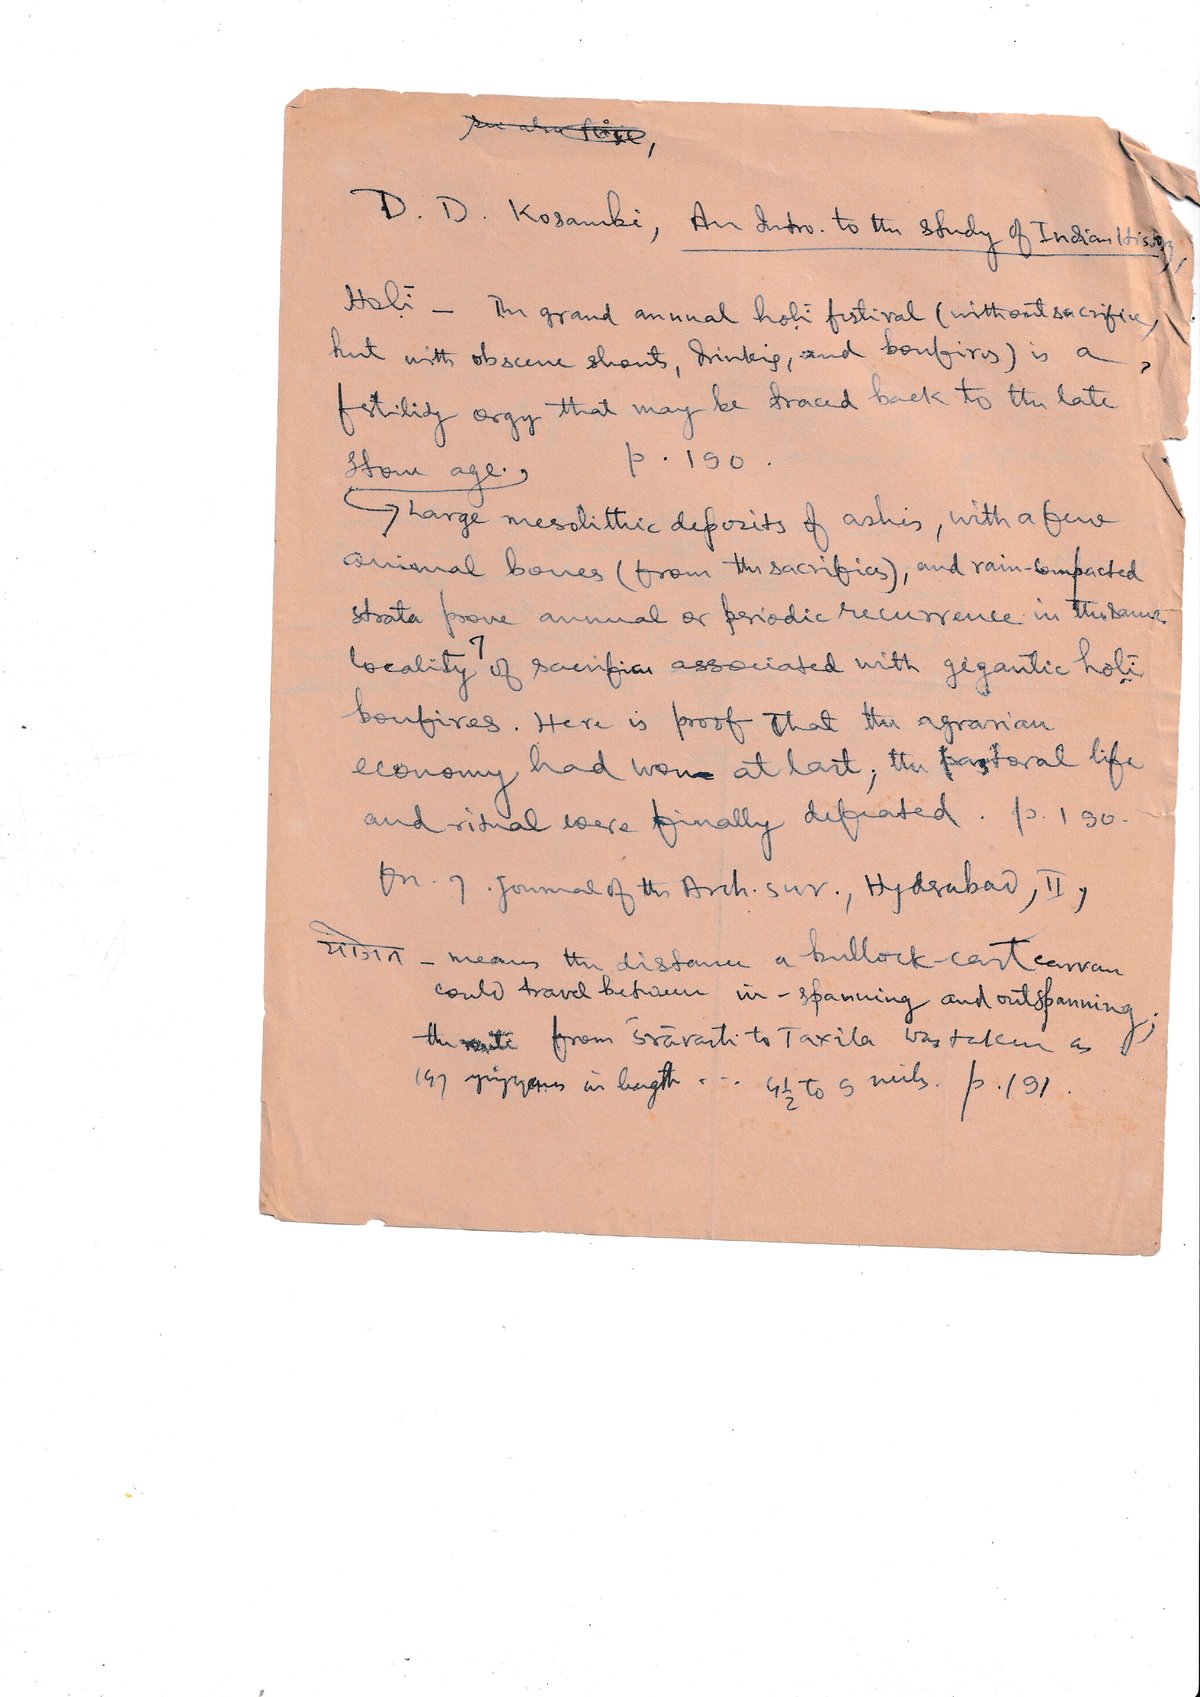 see also
D. D. Kosambi, An Intro. to the study of Indian History,
Holi — The grand annual holi festival (without sacrifice,
but with obscene shouts, drinking, and bonfires) is a
fertility orgy that may be traced back to the late
stone age., p. 190.
Large mesolithic deposits of ashes, with a few
animal bones (from the sacrifices), and rain-compacted
strata prove annual or periodic recurrence in the same
locality 7 of sacrifice associated with gigantic holi
bonfires. Here is proof that the agrarian
economy had won at last; the pastoral life
and ritual were finally defeated. p. 190.
fn. 7 Journal of the Arch. sur., Hyderabad, II,
योजन — means the distance a bullock-cart carvan
could travel between in-spanning and outspanning;
the route from Śrāvasti to Taxila was taken as
in length ... 4½ to 5 miles. p. 191.